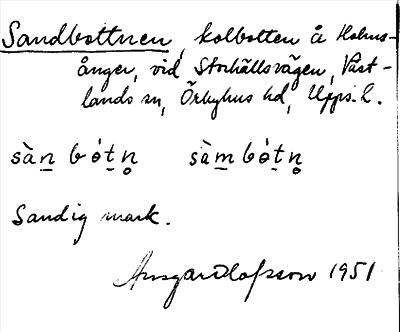 Sandbottnen, kolbotten å Holms-
ånger, vid Storhällsvägen, Väst-
lands sn, Örbyhus hd, Upps. l.
sàn̲ bót̲n̥ sàm̲bót̲n̥
Sandig mark.
Ansgar Olofsson 1951